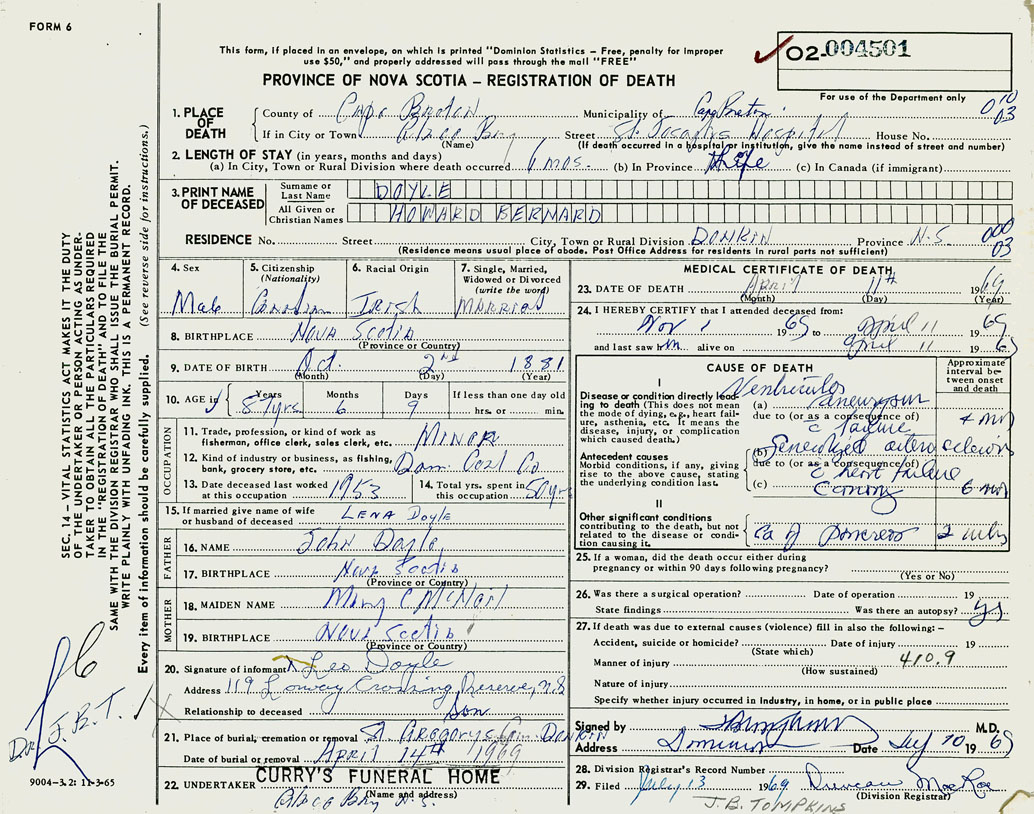 FORM 6
This form, if placed in an envelope, on which is printed "Dominion Statistics – Free, penalty for improper
use $50," and properly addressed will pass through the mail "FREE"
PROVINCE OF NOVA SCOTIA – REGISTRATION OF DEATH
02-004501
For use of the Department only
010
03
1. PLACE OF DEATH
County of Cape Breton Municipality of Cape Breton
If in City or Town Glace Bay Street St. Joseph's Hospital House No.
(Name) (If death occurred in a hospital or institution, give the name instead of street and number)
2. LENGTH OF STAY (in years, months and days)
(a) In City, Town or Rural Division where death occurred 6 mos. (b) In Province life (c) In Canada (if immigrant)
3. PRINT NAME OF DECEASED
Surname or Last Name DOYLE
All Given or Christian Names HOWARD BERNARD
RESIDENCE No. Street City, Town or Rural Division DONKIN Province N.S.
000
03
(Residence means usual place of abode. Post Office Address for residents in rural parts not sufficient)
4. Sex Male
5. Citizenship (Nationality) Canadian
6. Racial Origin Irish
7. Single, Married, Widowed or Divorced (write the word) MARRIED
8. BIRTHPLACE NOVA SCOTIA
(Province or Country)
9. DATE OF BIRTH Oct. 2nd 1881
(Month) (Day) (Year)
10. AGE in Years Months Days If less than one day old
87 yrs 6 9 hrs. or min.
OCCUPATION
11. Trade, profession, or kind of work as fisherman, office clerk, sales clerk, etc. MINER
12. Kind of industry or business, as fishing, bank, grocery store, etc. Dom. Coal Co
13. Date deceased last worked at this occupation 1953
14. Total yrs. spent in this occupation 50 yrs
15. If married give name of wife or husband of deceased LENA DOYLE
FATHER
16. NAME John Doyle
17. BIRTHPLACE Nova Scotia
(Province or Country)
MOTHER
18. MAIDEN NAME Mary C McNeil
19. BIRTHPLACE NOVA SCOTIA
(Province or Country)
20. Signature of informant X Leo Doyle
Address 119 Lorway Crossing, Reserve, N.S
Relationship to deceased Son
21. Place of burial, cremation or removal St Gregorys Cem. DONKIN
Date of burial or removal APRIL 14TH 1969
22. UNDERTAKER CURRY'S FUNERAL HOME
(Name and address)
Glace Bay N.S.
MEDICAL CERTIFICATE OF DEATH
23. DATE OF DEATH April 11th 1969
(Month) (Day) (Year)
24. I HEREBY CERTIFY that I attended deceased from:
Nov 1 1965 to April 11 1969
and last saw him alive on April 11 1969
CAUSE OF DEATH
Approximate interval between onset and death
I
Disease or condition directly leading to death (This does not mean the mode of dying, e.g., heart failure, asthenia, etc. It means the disease, injury, or complication which caused death.)
(a) Ventricular aneurysm
due to (or as a consequence of)
c failure
Antecedent causes
Morbid conditions, if any, giving rise to the above cause, stating the underlying condition last.
(b) Generalized arterio sclerosis
due to (or as a consequence of)
c heart failure
(c) Coronary 6 mos
II
Other significant conditions contributing to the death, but not related to the disease or condition causing it.
Ca of Pancreas 2
25. If a woman, did the death occur either during pregnancy or within 90 days following pregnancy?
(Yes or No)
26. Was there a surgical operation? Date of operation 19
State findings Was there an autopsy? yes
27. If death was due to external causes (violence) fill in also the following: –
Accident, suicide or homicide? Date of injury 19
(State which)
Manner of injury 410.9
(How sustained)
Nature of injury
Specify whether injury occurred in industry, in home, or in public place
Signed by M.D.
Address Dominion Date July 10 1969
28. Division Registrar's Record Number
29. Filed July 13 1969 Duncan MacRae
(Division Registrar)
J.B. TOMPKINS
SEC. 14 – VITAL STATISTICS ACT MAKES IT THE DUTY
OF THE UNDERTAKER OR PERSON ACTING AS UNDER-
TAKER TO OBTAIN ALL THE PARTICULARS REQUIRED
IN THE "REGISTRATION OF DEATH" AND TO FILE THE
SAME WITH THE DIVISION REGISTRAR WHO SHALL ISSUE THE BURIAL PERMIT.
WRITE PLAINLY WITH UNFADING INK. THIS IS A PERMANENT RECORD.
Every item of information should be carefully supplied. (See reverse side for instructions.)
J.B.T.
9004-3.2: 11-3-65